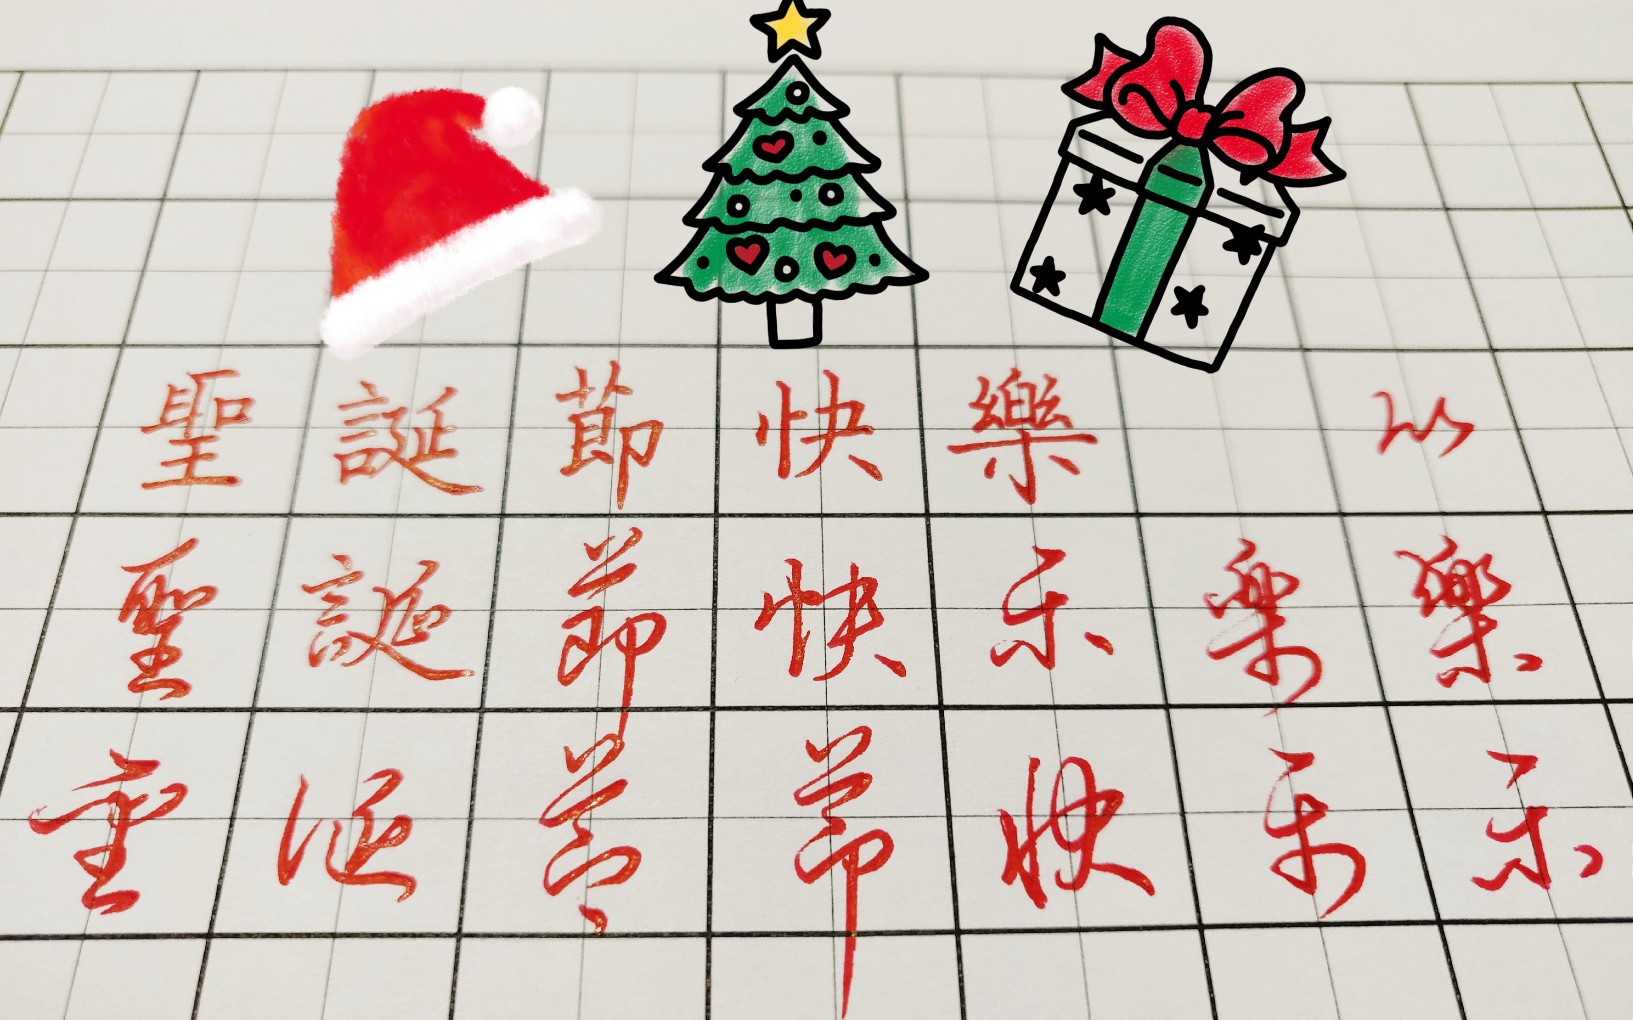 聖誕節快樂 以
聖誕節快乐樂樂
聖诞節節快乐乐